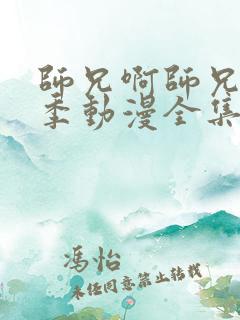 師兄啊師兄
季動漫全集
馮怡
未经同意禁止转载